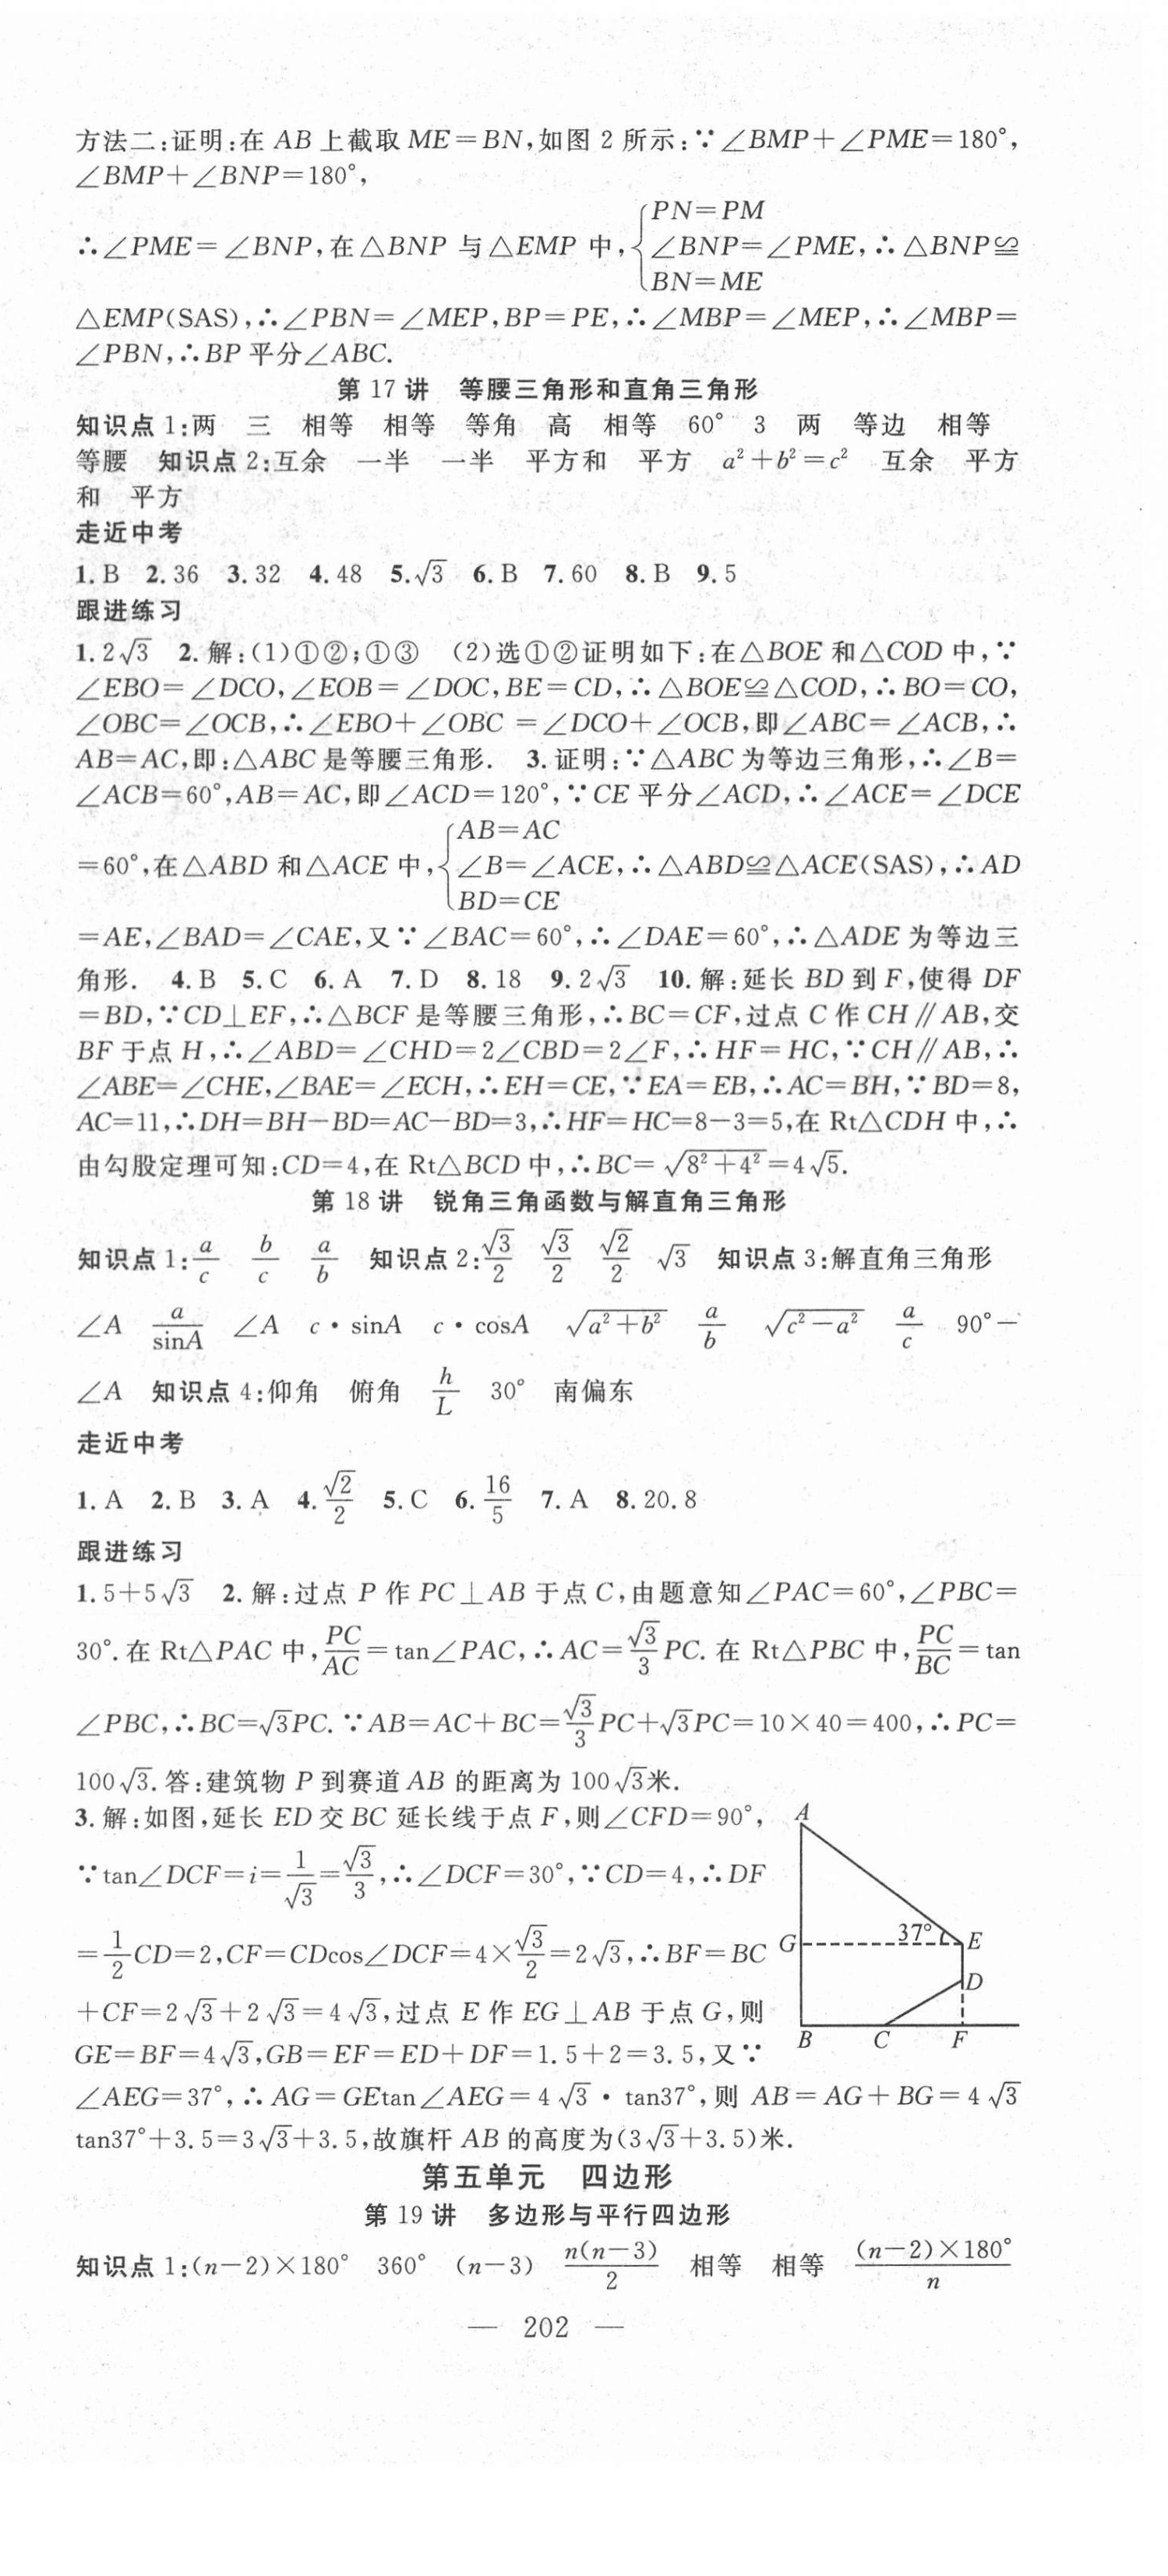 方法二:证明:在 AB 上截取 ME=BN,如图 2 所示:∵∠BMP+∠PME=180°,
∠BMP+∠BNP=180°,
∴∠PME=∠BNP,在△BNP 与△EMP 中,{PN=PM ∠BNP=∠PME,∴△BNP≌ BN=ME
△EMP(SAS),∴∠PBN=∠MEP,BP=PE,∴∠MBP=∠MEP,∴∠MBP=
∠PBN,∴BP 平分∠ABC.
第 17 讲 等腰三角形和直角三角形
知识点 1:两 三 相等 相等 等角 高 相等 60° 3 两 等边 相等
等腰 知识点 2:互余 一半 一半 平方和 平方 a²+b²=c² 互余 平方
和 平方
走近中考
1. B 2. 36 3. 32 4. 48 5. √3 6. B 7. 60 8. B 9. 5
跟进练习
1. 2√3 2. 解:(1)①②;①③ (2)选①②证明如下:在△BOE 和△COD 中,∵
∠EBO=∠DCO,∠EOB=∠DOC,BE=CD,∴△BOE≌△COD,∴BO=CO,
∠OBC=∠OCB,∴∠EBO+∠OBC =∠DCO+∠OCB,即∠ABC=∠ACB,∴
AB=AC,即:△ABC 是等腰三角形. 3. 证明:∵△ABC 为等边三角形,∴∠B=
∠ACB=60°,AB=AC,即∠ACD=120°,∵CE 平分∠ACD,∴∠ACE=∠DCE
=60°,在△ABD 和△ACE 中,{AB=AC ∠B=∠ACE,∴△ABD≌△ACE(SAS),∴AD BD=CE
=AE,∠BAD=∠CAE,又∵∠BAC=60°,∴∠DAE=60°,∴△ADE 为等边三
角形. 4. B 5. C 6. A 7. D 8. 18 9. 2√3 10. 解:延长 BD 到 F,使得 DF
=BD,∵CD⊥EF,∴△BCF 是等腰三角形,∴BC=CF,过点 C 作 CH∥AB,交
BF 于点 H,∴∠ABD=∠CHD=2∠CBD=2∠F,∴HF=HC,∵CH∥AB,∴
∠ABE=∠CHE,∠BAE=∠ECH,∴EH=CE,∵EA=EB,∴AC=BH,∵BD=8,
AC=11,∴DH=BH−BD=AC−BD=3,∴HF=HC=8−3=5,在 Rt△CDH 中,∴
由勾股定理可知:CD=4,在 Rt△BCD 中,∴BC=√(8²+4²)=4√5.
第 18 讲 锐角三角函数与解直角三角形
知识点 1:a/c b/c a/b 知识点 2:√3/2 √3/2 √2/2 √3 知识点 3:解直角三角形
∠A a/sinA ∠A c·sinA c·cosA √(a²+b²) a/b √(c²−a²) a/c 90°−
∠A 知识点 4:仰角 俯角 h/L 30° 南偏东
走近中考
1. A 2. B 3. A 4. √2/2 5. C 6. 16/5 7. A 8. 20.8
跟进练习
1. 5+5√3 2. 解:过点 P 作 PC⊥AB 于点 C,由题意知∠PAC=60°,∠PBC=
30°. 在 Rt△PAC 中,PC/AC=tan∠PAC,∴AC=√3/3 PC. 在 Rt△PBC 中,PC/BC=tan
∠PBC,∴BC=√3PC. ∵AB=AC+BC=√3/3 PC+√3PC=10×40=400,∴PC=
100√3. 答:建筑物 P 到赛道 AB 的距离为 100√3米.
3. 解:如图,延长 ED 交 BC 延长线于点 F,则∠CFD=90°,
∵tan∠DCF=i=1/√3=√3/3,∴∠DCF=30°,∵CD=4,∴DF
=1/2 CD=2,CF=CDcos∠DCF=4×√3/2=2√3,∴BF=BC
+CF=2√3+2√3=4√3,过点 E 作 EG⊥AB 于点 G,则
GE=BF=4√3,GB=EF=ED+DF=1.5+2=3.5,又∵
∠AEG=37°,∴AG=GEtan∠AEG=4√3·tan37°,则 AB=AG+BG=4√3
tan37°+3.5=3√3+3.5,故旗杆 AB 的高度为(3√3+3.5)米.
A
G 37° E
D
B C F
第五单元 四边形
第 19 讲 多边形与平行四边形
知识点 1:(n−2)×180° 360° (n−3) n(n−3)/2 相等 相等 (n−2)×180°/n
— 202 —